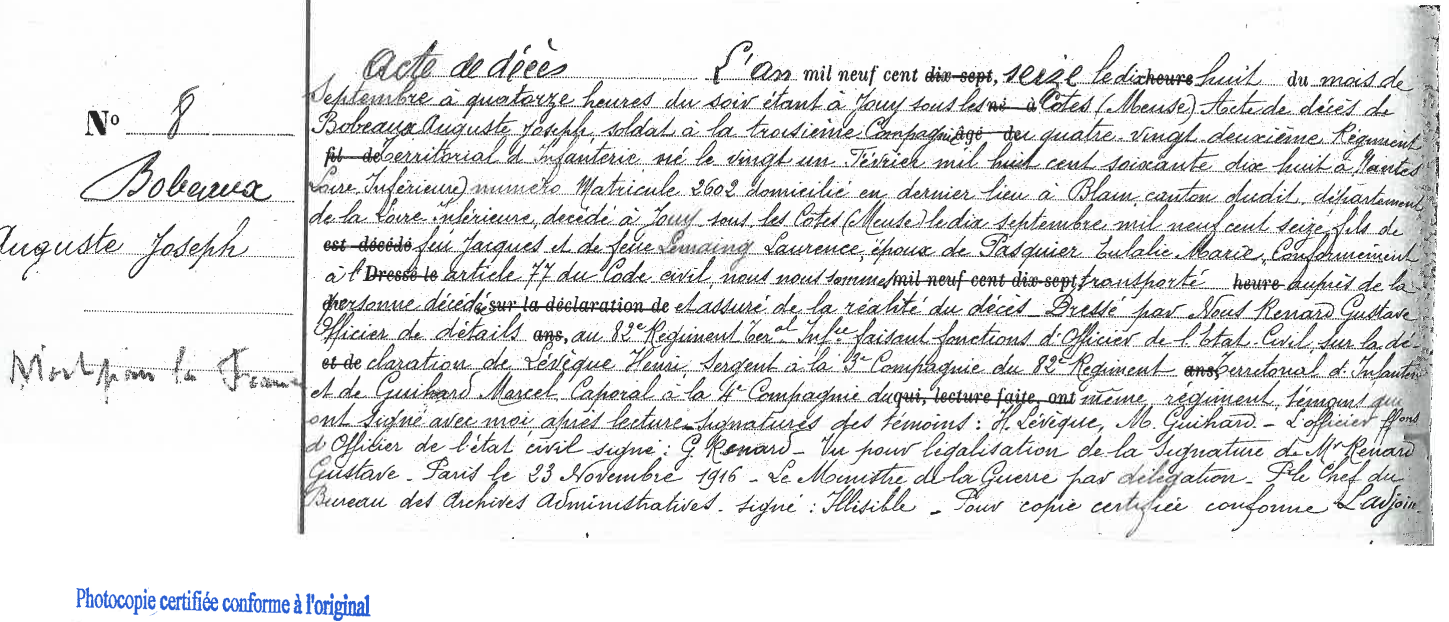 Acte de décès L'an mil neuf cent dix-sept, seize le dix heures huit du mois de
Septembre à quatorze heures du soir étant à Jouy sous les né à Côtes (Meuse) Acte de décès de
N° 8
Bobeaux Auguste Joseph, soldat à la troisième Compagnie âgé de du quatre vingt deuxième Régiment
fil de Territorial d'Infanterie né le vingt un Février mil huit cent soixante dix huit à Nantes
Bobeaux
Loire Inférieure) numéro Matricule 2602 domicilié en dernier lieu à Blain canton dudit, département
de la Loire Inférieure, décédé à Jouy sous les Côtes (Meuse) le dix septembre mil neuf cent seize, fils de
Auguste Joseph
est décédé feu Jacques et de feue Lemaing Laurence, époux de Pasquier Eulalie Marie, Conformément
à l' Dressé le article 77 du Code civil, nous nous sommes mil neuf cent dix-sept, transporté heure auprès de la
personne décédée sur la déclaration de et assuré de la réalité du décès _ Dressé par Nous Renard Gustave
Officier de détails ans, au 82e Régiment Ter.al Inf.ie faisant fonctions d'Officier de l'Etat-Civil, sur la dé-
Mort pour la France
et de claration de Lévèque Henri Sergent à la 3e Compagnie du 82e Régiment ans, Territorial d'Infanterie
et de Guihard Marcel, Caporal à la 4e Compagnie du qui, lecture faite, ont même régiment, témoins qui
ont signé avec moi après lecture _ signatures des témoins : H. Lévèque, M. Guihard. _ L'officier ffons
d'Officier de l'état civil signé : G Renard _ Vu pour légalisation de la Signature de Mr Renard
Gustave _ Paris le 23 Novembre 1916 _ Le Ministre de la Guerre par délégation _ P. le Chef du
Bureau des Archives Administratives _ signé : Illisible _ Pour copie certifiée conforme L'adjoin
Photocopie certifiée conforme à l'original